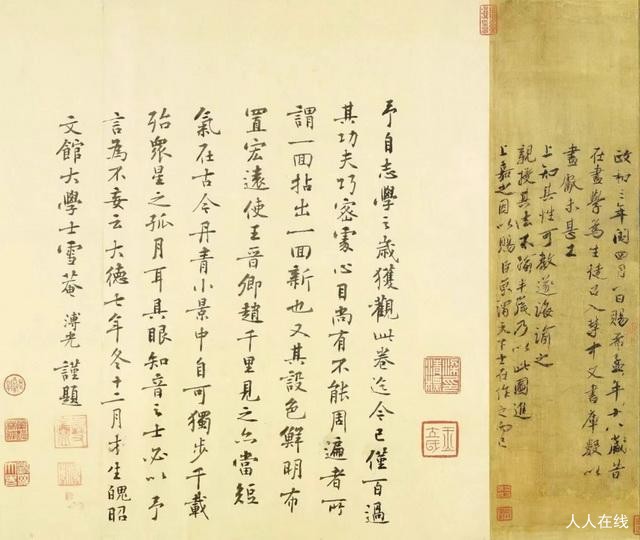 政和三年閏四月一日賜希孟年十八歲昔
在畫學為生徒召入禁中文書庫數以
畫獻未甚工
上知其性可教遂誨諭之
親授其法不踰半歲乃以此圖進
上嘉之因以賜臣京謂天下士在作之而已
予自志學之歲獲觀此卷迄今已僅百過
其功夫巧密處心目尚有不能周遍者所
謂一囬拈出一囬新也又其設色鮮明布
置宏遠使王晉卿趙千里見之亦當短
氣在古今丹青小景中自可獨步千載
殆眾星之孤月耳具眼知音之士必以予
言為不妄云大德七年冬十二月才生魄昭
文館大學士雪菴溥光謹題
人人在线